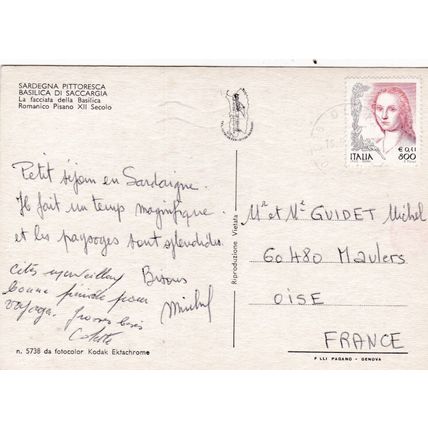 SARDEGNA PITTORESCA
BASILICA DI SACCARGIA
La facciata della Basilica
Romanico Pisano XII Secolo
€ 0,41
ITALIA 800
Petit séjour en Sardaigne.
Il fait un temps magnifique
et les paysages sont splendides.
Bisous
Michel
bonne pour
Riproduzione Vietata
Mr et Me GUIDET Michel
60480 Maulers
OISE
FRANCE
n. 5738 da fotocolor Kodak Ektachrome
F.LLI PAGANO - GENOVA